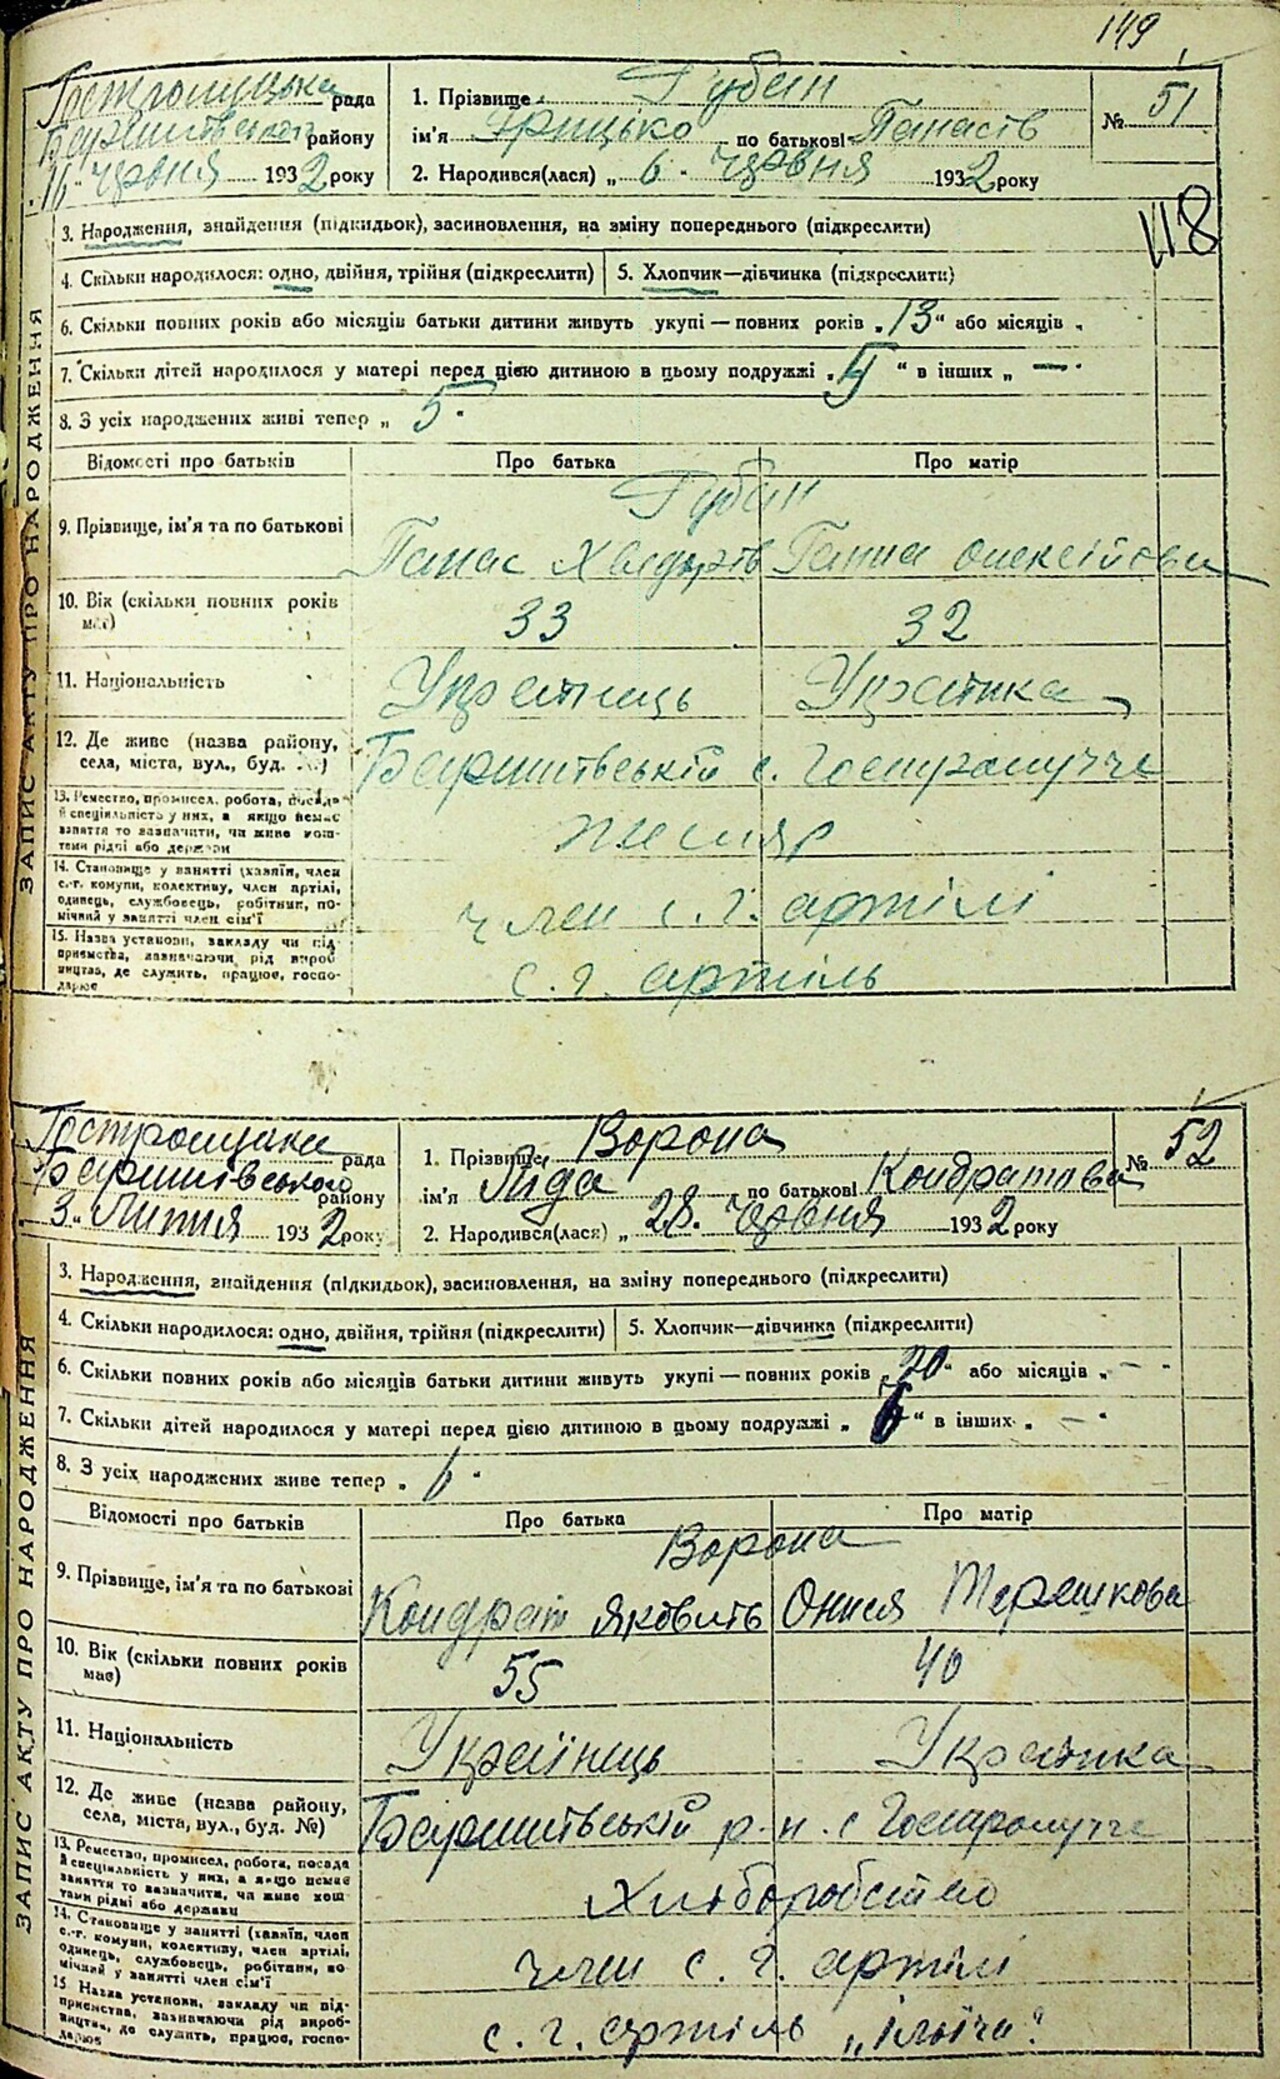 149
Гостролуцька рада
Баришівського району
"16" червня 1932 року
1. Прізвище Губан
ім'я Грицько по батькові Панасів
2. Народився(лася) „6" червня 1932 року
№ 51
118
ЗАПИС АКТУ ПРО НАРОДЖЕННЯ
3. Народження, знайдення (підкидьок), засиновлення, на зміну попереднього (підкреслити)
4. Скільки народилося: одно, двійня, трійня (підкреслити) 5. Хлопчик—дівчинка (підкреслити)
6. Скільки повних років або місяців батьки дитини живуть укупі — повних років „13" або місяців „
7. Скільки дітей народилося у матері перед цією дитиною в цьому подружжі „ " в інших „ — "
8. З усіх народжених живі тепер „5"
Відомості про батьків Про батька Про матір
9. Прізвище, ім'я та по батькові
Губан
Панас Ганна Олексійовна
10. Вік (скільки повних років має) 33 32
11. Національність Українець Українка
12. Де живе (назва району, села, міста, вул., буд. №) Баришівській с. Гостролуччє
13. Ремество, промисел, робота, посада й спеціяльність у них, а якщо немає заняття то зазначити, чи живе коштами рідні або держави
тесляр
14. Становище у занятті (хазяїн, член с.-г. комуни, колективу, член артілі, одинець, службовець, робітник, помічний у занятті член сім'ї
член с. г. артілі
15. Назва установи, закладу чи підприємства, зазначаючи рід виробництва, де служить, працює, господарює
с. г. артіль
Гостролуцька рада
Баришівського району
"3" Липня 1932 року
1. Прізвище Ворона
ім'я Ліда по батькові Кондратова
2. Народився(лася) „28" червня 1932 року
№ 52
ЗАПИС АКТУ ПРО НАРОДЖЕННЯ
3. Народження, знайдення (підкидьок), засиновлення, на зміну попереднього (підкреслити)
4. Скільки народилося: одно, двійня, трійня (підкреслити) 5. Хлопчик—дівчинка (підкреслити)
6. Скільки повних років або місяців батьки дитини живуть укупі — повних років „20" або місяців „ — "
7. Скільки дітей народилося у матері перед цією дитиною в цьому подружжі „6" в інших „ — "
8. З усіх народжених живе тепер „6"
Відомості про батьків Про батька Про матір
9. Прізвище, ім'я та по батькові
Ворона
Кондрат Яковить Онися Терешкова
10. Вік (скільки повних років має) 55 40
11. Національність Українець Українка
12. Де живе (назва району, села, міста, вул., буд. №) Баришівській р. н. с Гостролуччє
13. Ремество, промисел, робота, посада й спеціяльність у них, а якщо немає заняття то зазначити, чи живе коштами рідні або держави
Хліборобство
14. Становище у занятті (хазяїн, член с.-г. комуни, колективу, член артілі, одинець, службовець, робітник, помічний у занятті член сім'ї
член с. г. артілі
15 Назва установи, закладу чи підприємства, зазначаючи рід виробництва, де служить, працює, господарює
с. г. артіль „Ілліча"